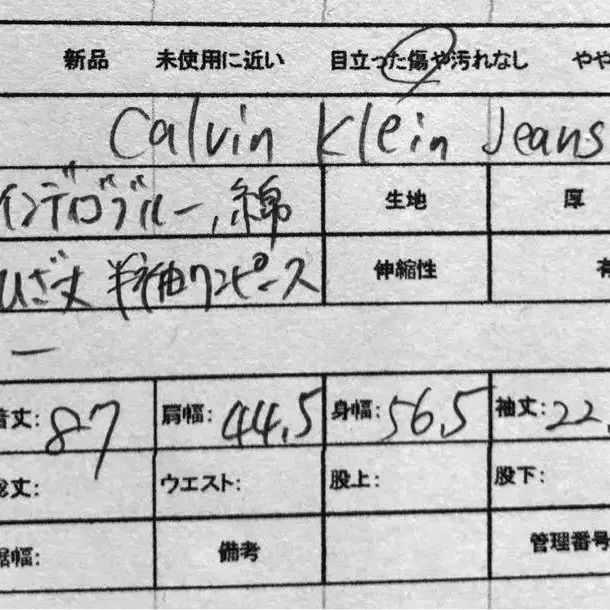 新品 未使用に近い 目立った傷や汚れなし やや
Calvin Klein Jeans
インデゴブルー, 綿 生地 厚
ひざ丈 半袖ワンピース 伸縮性 有
ー
着丈: 87 肩幅: 44.5 身幅: 56.5 袖丈: 22.
総丈: ウエスト: 股上: 股下:
裾幅: 備考 管理番号